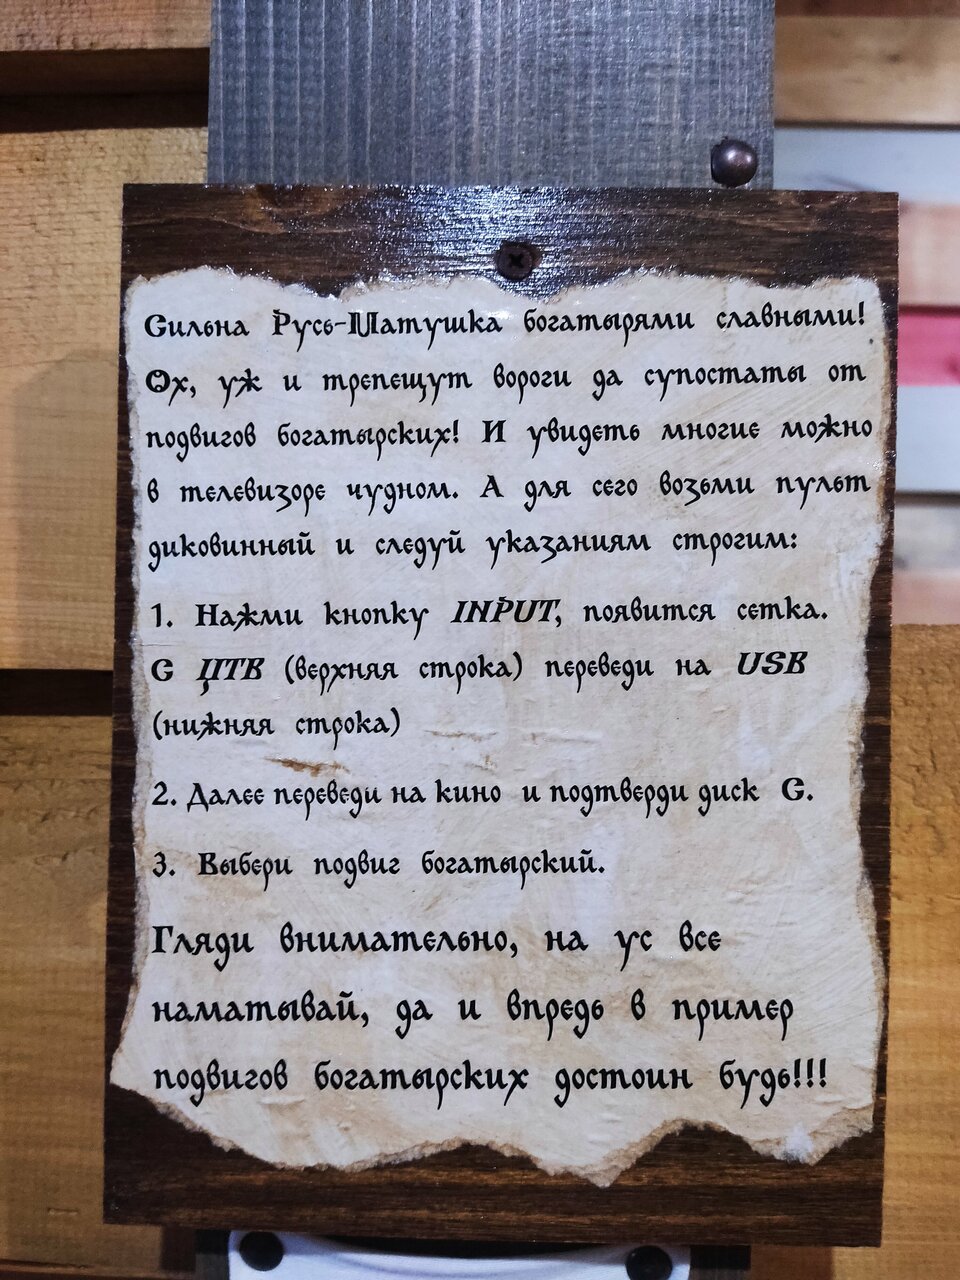 Сильна Русь-Матушка богатырями славными!
Ох, уж и трепещут вороги да супостаты от
подвигов богатырских! И увидеть многие можно
в телевизоре чудном. А для сего возьми пульт
диковинный и следуй указаниям строгим:
1. Нажми кнопку INPUT, появится сетка.
С ЦТВ (верхняя строка) переведи на USB
(нижняя строка)
2. Далее переведи на кино и подтверди диск С.
3. Выбери подвиг богатырский.
Гляди внимательно, на ус все
наматывай, да и впредь в пример
подвигов богатырских достоин будь!!!